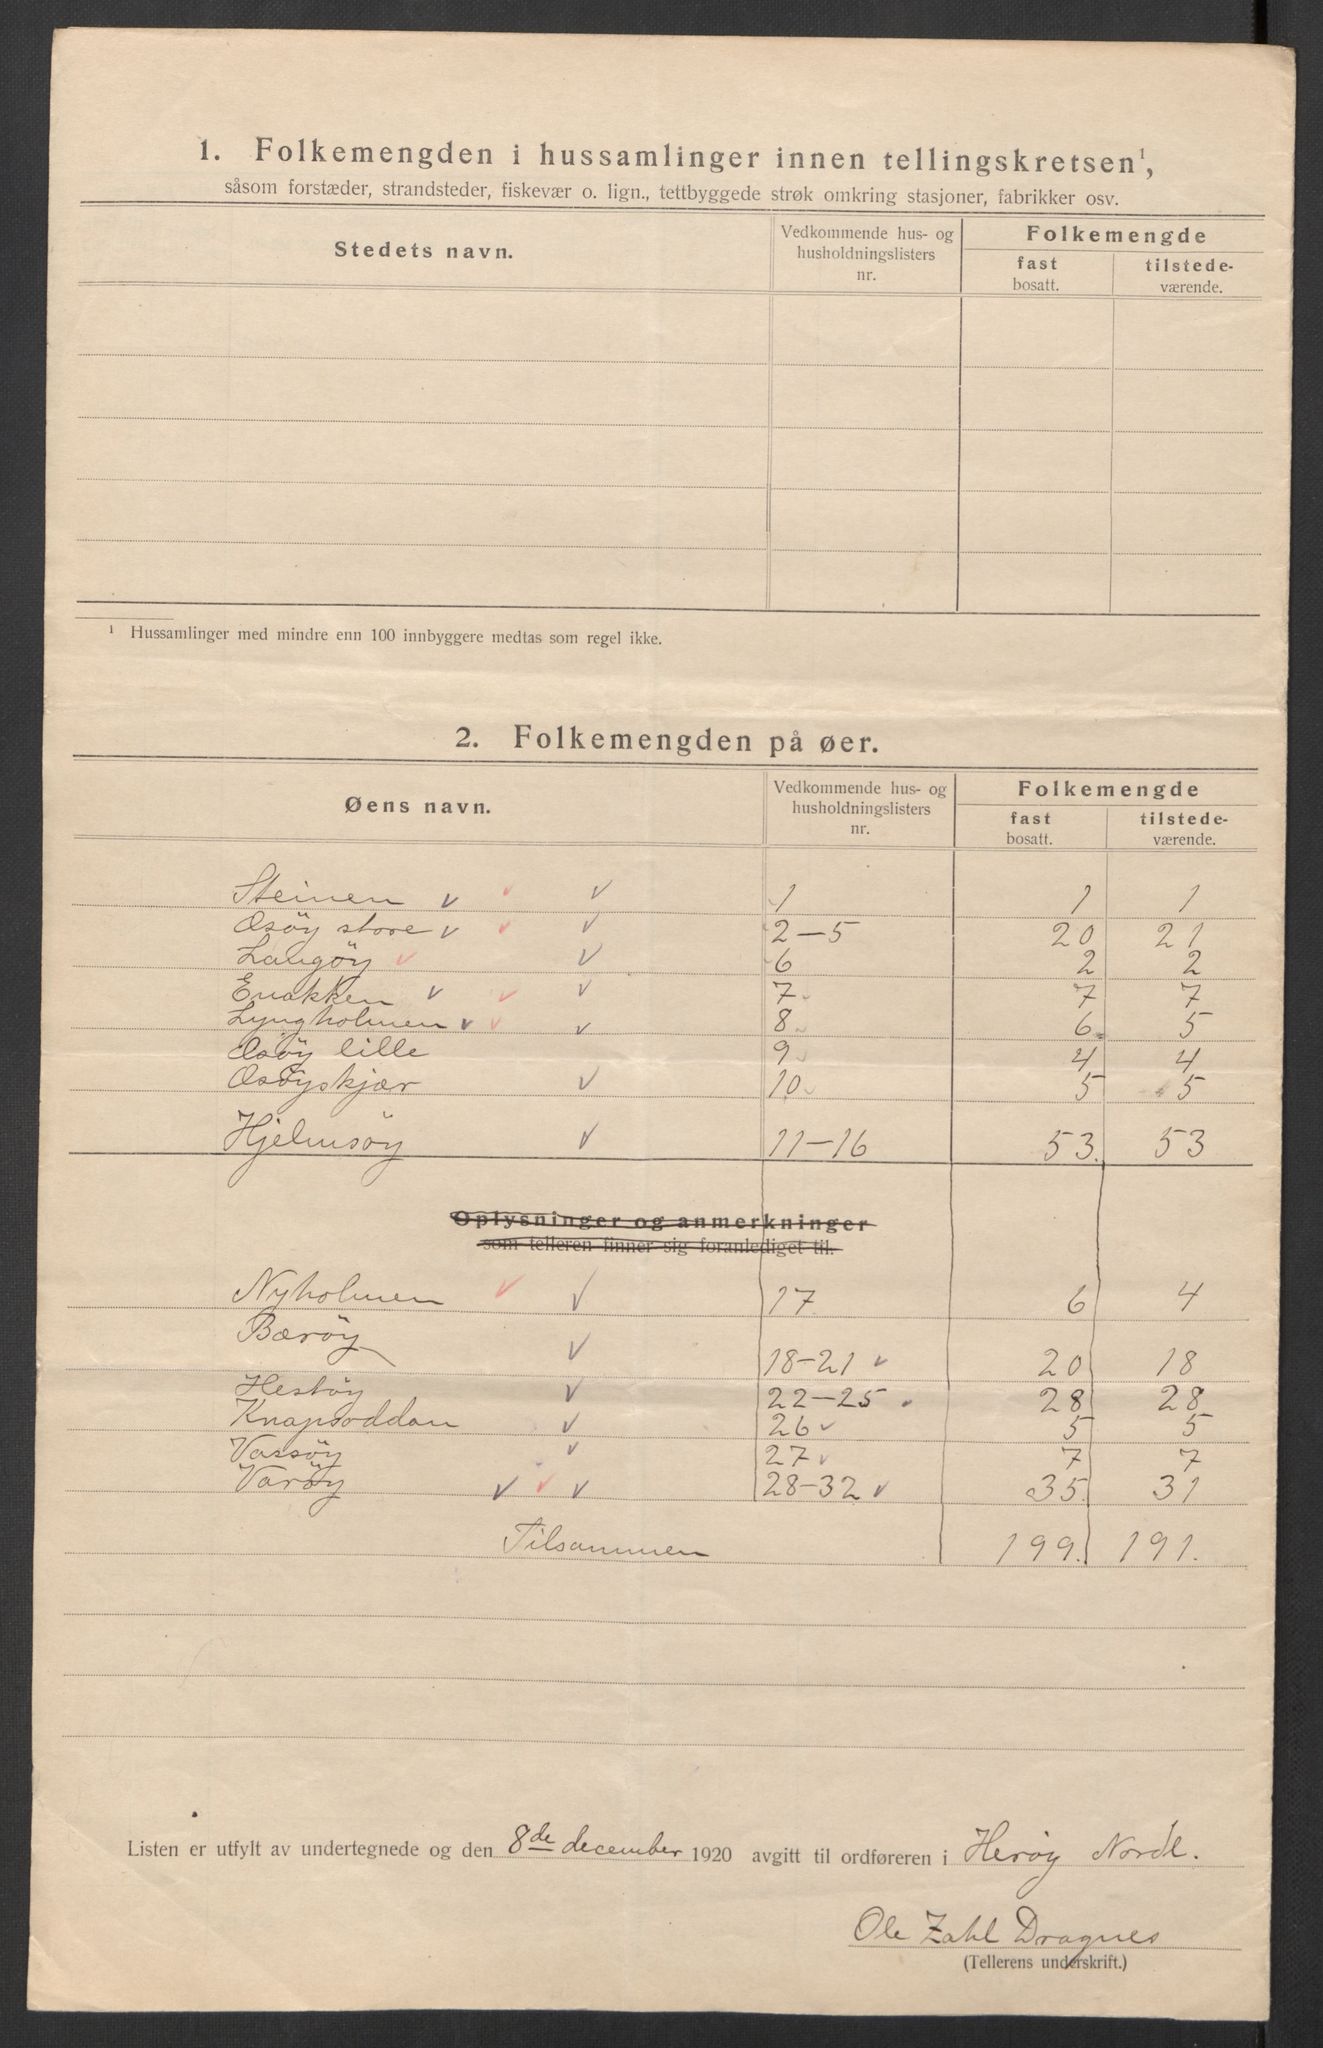 1. Folkemengden i hussamlinger innen tellingskretsen¹,
såsom forstæder, strandsteder, fiskevær o. lign., tettbyggede strøk omkring stasjoner, fabrikker osv.
Stedets navn. Vedkommende hus- og husholdningslisters nr. Folkemengde
fast bosatt. tilstede-værende.
¹ Hussamlinger med mindre enn 100 innbyggere medtas som regel ikke.
2. Folkemengden på øer.
Øens navn. Vedkommende hus- og husholdningslisters nr. Folkemengde
fast bosatt. tilstede-værende.
Steinen ✓ ✓ ✓ 1 1 1
Åsöy store ✓ ✓ ✓ 2–5 20 21
Langöy ✓ ✓ 6 2 2
✓ ✓ ✓ 7 7 7
Lyngholmen ✓ ✓ ✓ 8 6 5
lille 9 4 4
✓ 10 5 5
Hjelmsöy ✓ 11–16 53. 53
Oplysninger og anmerkninger
som telleren finner sig foranlediget til.
Nyholmen ✓ ✓ 17 6 4
Bæröy ✓ 18–21 ✓ 20 18
Hestöy ✓ 22–25 28 28
✓ 26 ✓ 5 5
Vassöy ✓ 27 ✓ 7 7
Varöy ✓ ✓ ✓ 28–32 ✓ 35. 31
Tilsammen 199. 191.
Listen er utfylt av undertegnede og den 8de december 1920 avgitt til ordføreren i Heröy Nordl.
Ole Zahl Dragnes
(Tellerens underskrift.)